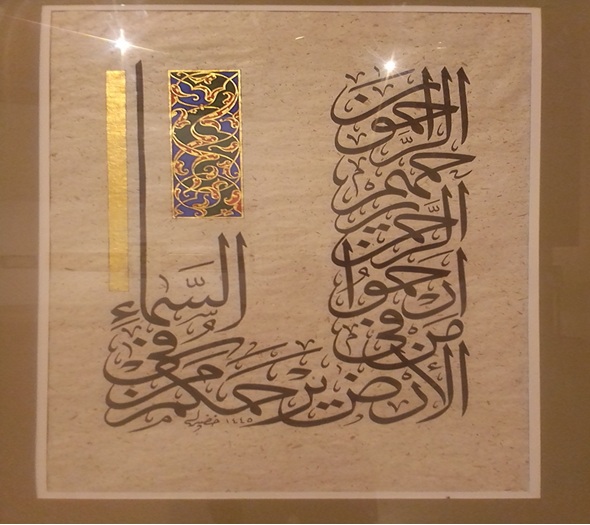 الراحمون
يرحمهم
الرَّحمن
ارحمُوا
مَن في
الأرض يرحمكم من
في
السَّماءِ
١٤٤٥